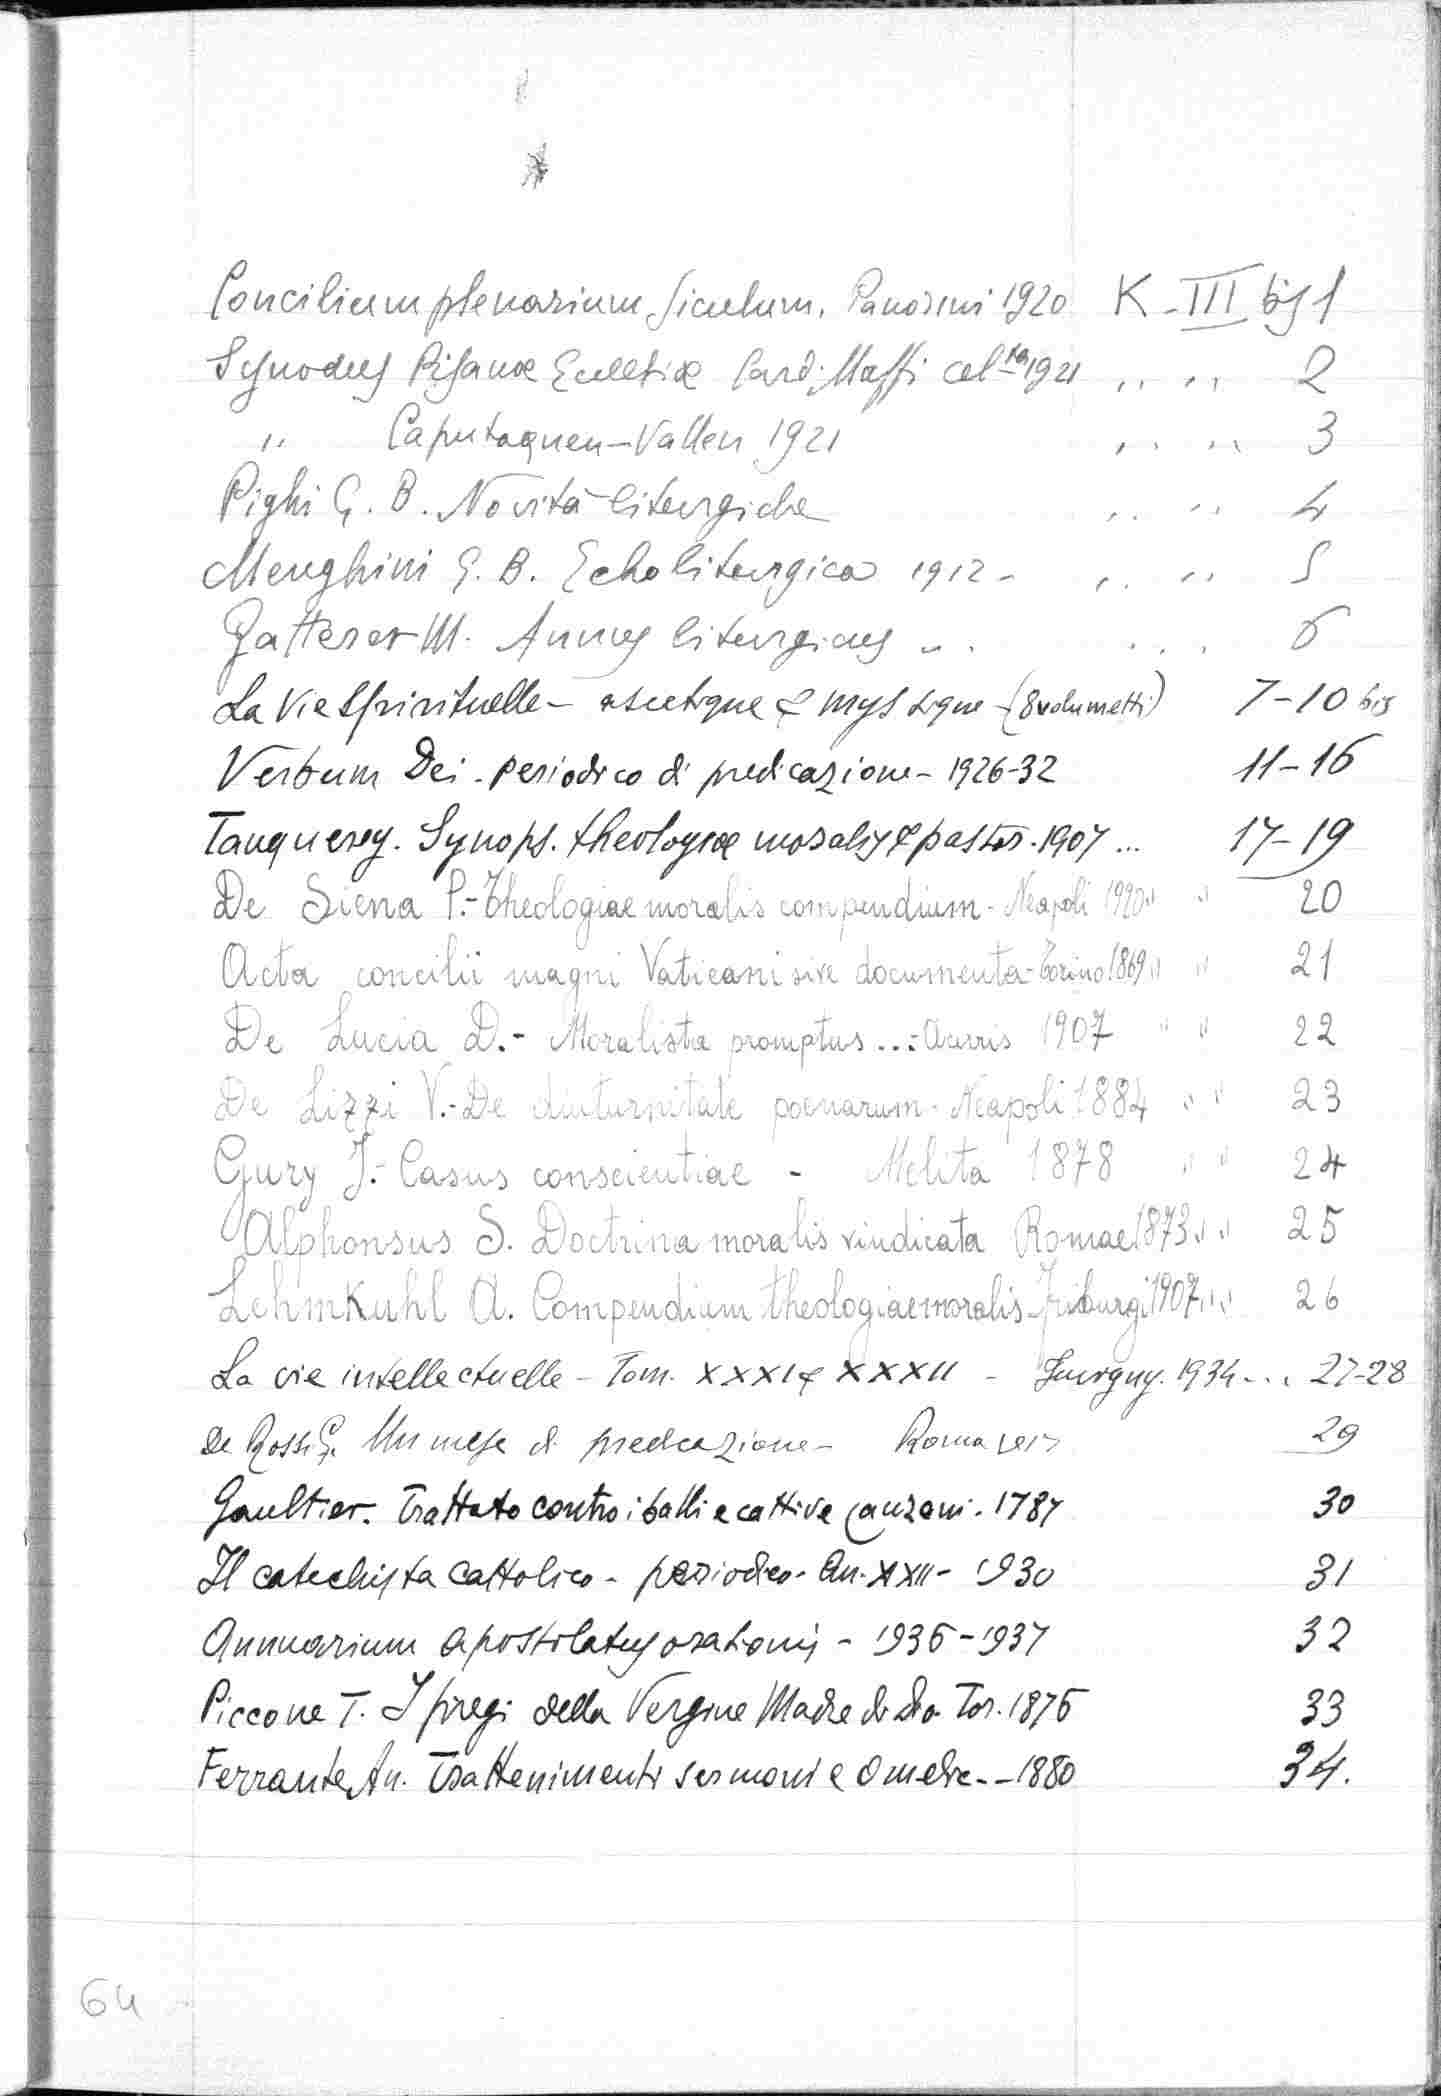 Concilium plenarium Siculum. Panormi 1920 K - III bis 1
Synodus Pisanæ Ecclesiæ Card. Maffi cel 1921 ,, ,, 2
,, Caputaquen-Vallen 1921 ,, ,, 3
Pighi G. B. Novità liturgiche ,, ,, 4
Menghini G. B. Echo liturgica 1912 - ,, ,, 5
Gatterer M. Annus liturgicus - . . . . 6
La Vie Spirituelle - ascetique & mystique - (8 volumetti) 7-10 bis
Verbum Dei - periodico di predicazione - 1926-32 11-16
Tanquerey. Synops. theologiæ moralis & pastor. 1907 ... 17-19
De Siena P.- Theologiae moralis compendium - Neapoli 1920 " " 20
Acta concilii magni Vaticani sive documenta - Torino 1869 " " 21
De Lucia D.- Moralista promptus ...- Acerris 1907 " " 22
De Lizzi V.- De diuturnitate poenarum - Neapoli 1884 " " 23
Gury J.- Casus conscientiae - Melita 1878 " " 24
Alphonsus S. Doctrina moralis vindicata Romae 1873 " " 25
Lehmkuhl A. Compendium theologiae moralis - Friburgi 1907 " " 26
La vie intellectuelle - Tom. XXXI & XXXII - Juvigny. 1934 ... 27-28
De Rossi G. Un mese di predicazione - Roma 29
Gaultier. Trattato contro i balli e cattive canzoni. 1787 30
Il catechista cattolico - periodico - An. XXII - 1930 31
Annuarium apostolatus orationis - 1936-1937 32
Piccone T. I pregi della Vergine Madre di Dio Tor. 1876 33
Ferrante An. Trattenimenti sermoni e Omelie - - 1880 34.
64